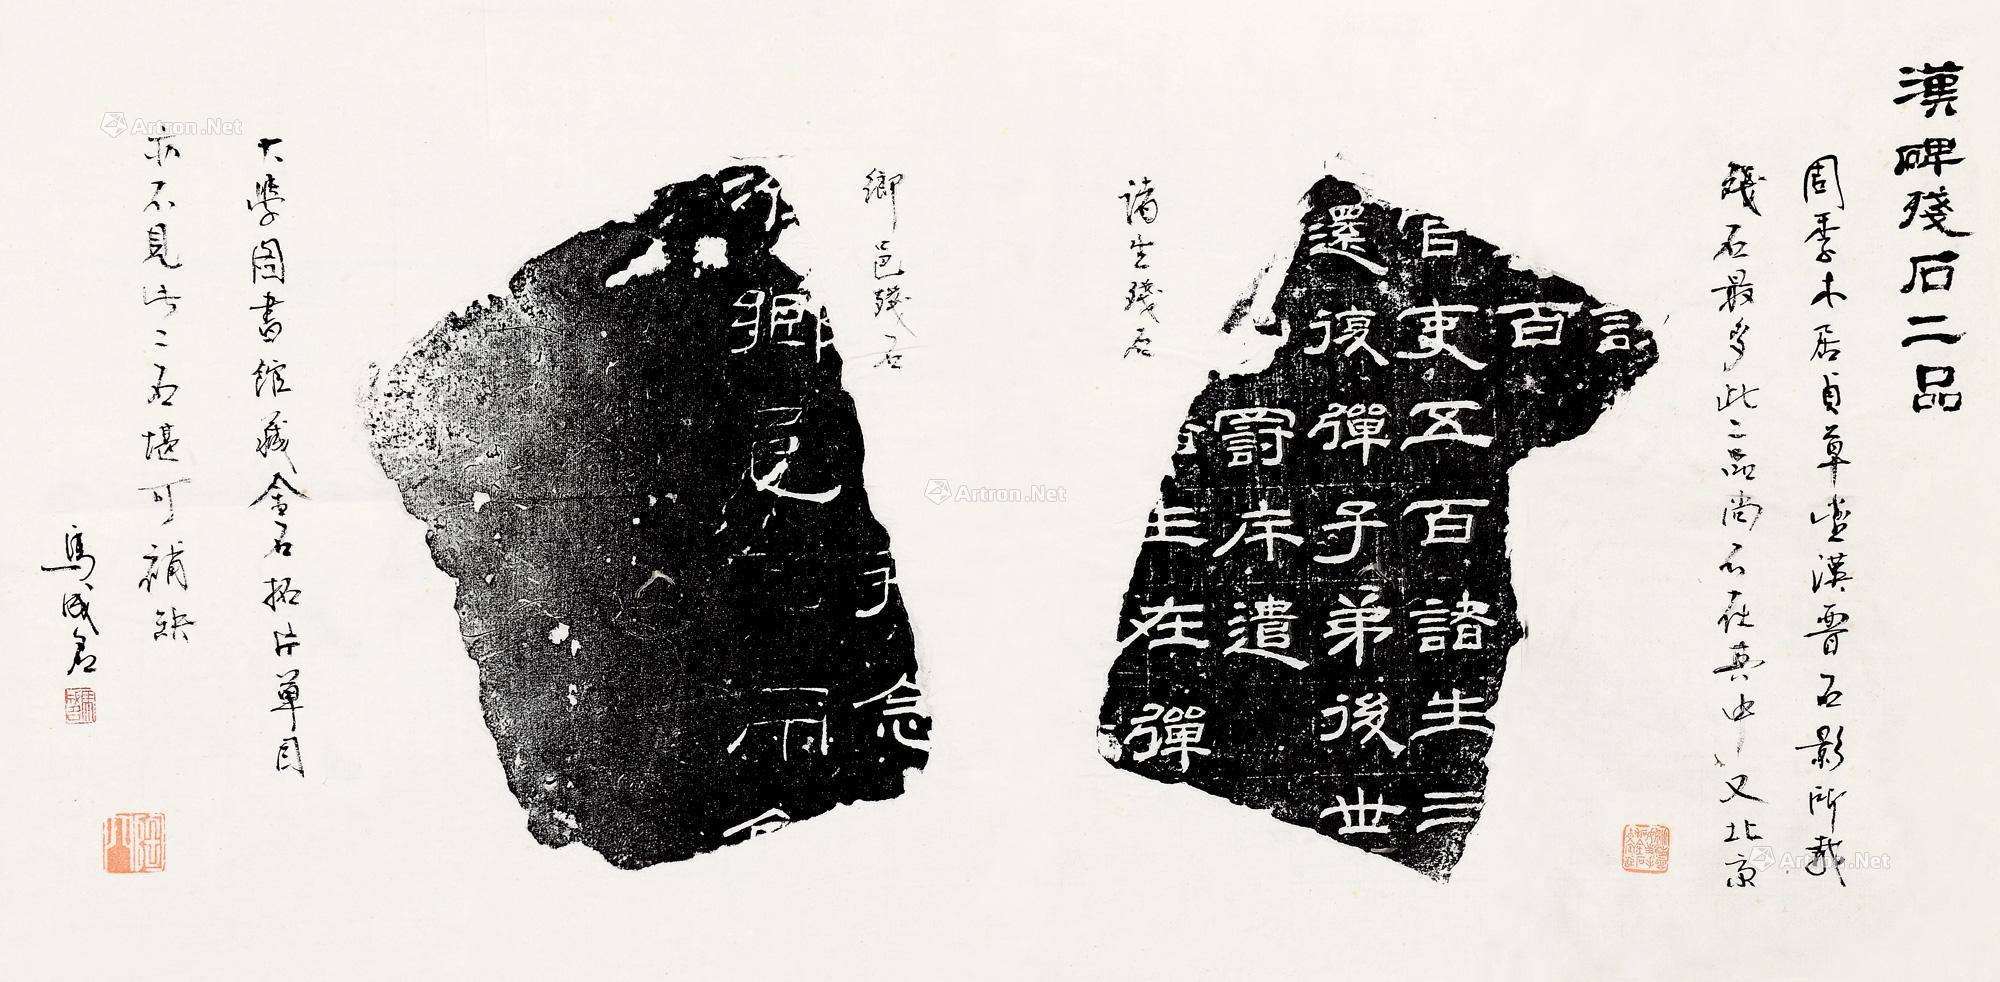 漢碑殘石二品
周季木居貞草堂漢晉石影所載
殘石最多此二品尚不在其中又北京
訁
百
官吏五百諸生三
還復彈子弟後世
罰床遣
生在彈
諸生殘石
鄉邑殘石
念
鄉邑
雨
大學圖書館藏金石拓片草目
亦不見此二石堪可補缺
馬成名
Artron.Net
Artron.Net
Artron.Net